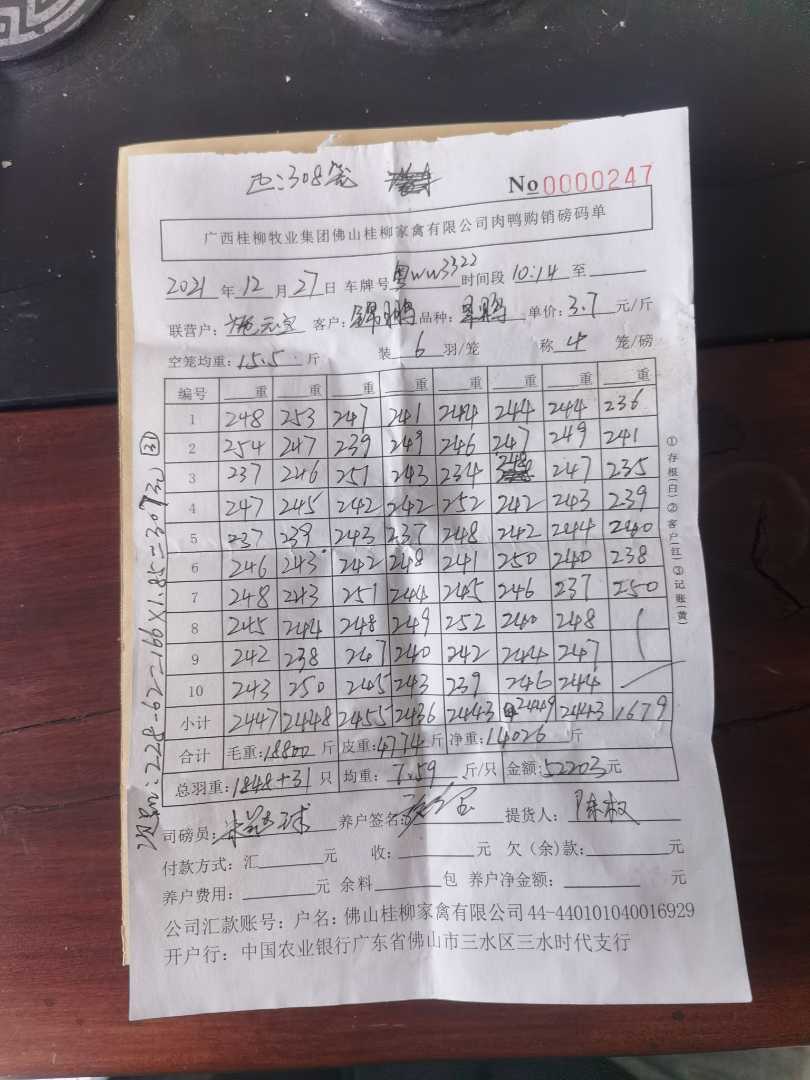 308笼
No 0000247
广西桂柳牧业集团佛山桂柳家禽有限公司肉鸭购销磅码单
2021 年 12 月 27 日 车牌号 粤WW3322 时间段 10:14 至
联营户: 客户: 锦鹏 品种: 单价: 3.7 元/斤
空笼均重: 15.5 斤 装 6 羽/笼 称 4 笼/磅
编号 重 重 重 重 重 重 重 重
1 248 253 247 241 244 244 244 236
2 254 247 239 249 246 247 249 241
3 237 246 251 243 234 248 247 235
4 247 245 242 242 252 242 243 239
5 237 239 243 237 248 242 244 240
6 246 243 242 248 241 250 240 238
7 248 243 251 244 245 246 237 250
8 245 244 248 249 252 240 248
9 242 238 247 240 242 244 247
10 243 250 245 243 239 246 244
小计 2447 2448 2455 2436 2443 2449 2443 1679
合计 毛重: 18800 斤 皮重: 4774 斤 净重: 14026 斤
总羽重: 1848+31 只 均重: 7.59 斤/只 金额: 52203 元
司磅员: 养户签名: 提货人: 陈权
付款方式: 汇 元 收: 元 欠(余)款: 元
养户费用: 元 余料 包 养户净金额: 元
公司汇款账号: 户名: 佛山桂柳家禽有限公司 44-440101040016929
开户行: 中国农业银行广东省佛山市三水区三水时代支行
①存根(白)②客户(红)③记账(黄)
228-62=166×1.85=307元 31